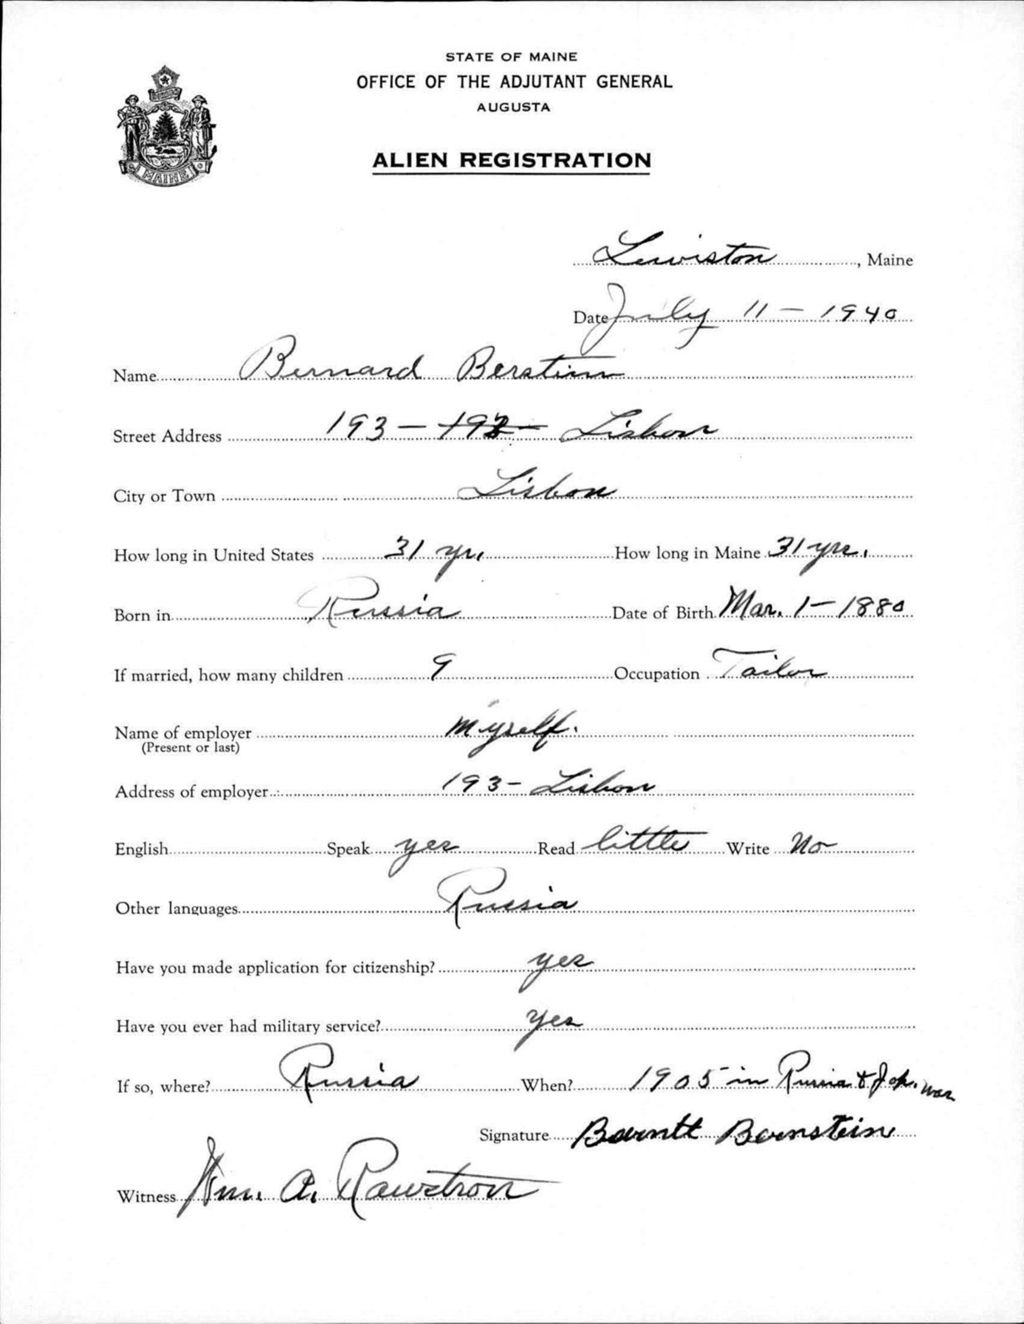 STATE OF MAINE
OFFICE OF THE ADJUTANT GENERAL
AUGUSTA
ALIEN REGISTRATION
MAINE
Lewiston, Maine
Date July 11 - 1940
Name Bernard Berstein
Street Address 193 - 192 - Lisbon
City or Town Lisbon
How long in United States 31 yr. How long in Maine 31 yrs.
Born in Russia Date of Birth Mar. 1 - 1880
If married, how many children 9 Occupation Tailor
Name of employer Myself.
(Present or last)
Address of employer 193 - Lisbon
English Speak yes Read little Write No
Other languages Russia
Have you made application for citizenship? yes
Have you ever had military service? yes
If so, where? Russia When? 1905 in Russia & Jap. war
Signature Barntt Bernstein
Witness Wm. A. Rawstron